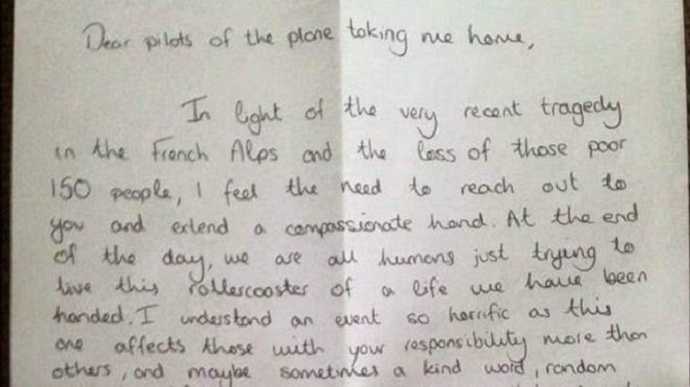 Dear pilots of the plane taking me home,
In light of the very recent tragedy
in the French Alps and the loss of those poor
150 people, I feel the need to reach out to
you and extend a compassionate hand. At the end
of the day, we are all humans just trying to
live this rollercoaster of a life we have been
handed. I understand an event so horrific as this
one affects those with your responsibility more than
others, and maybe sometimes a kind word, random